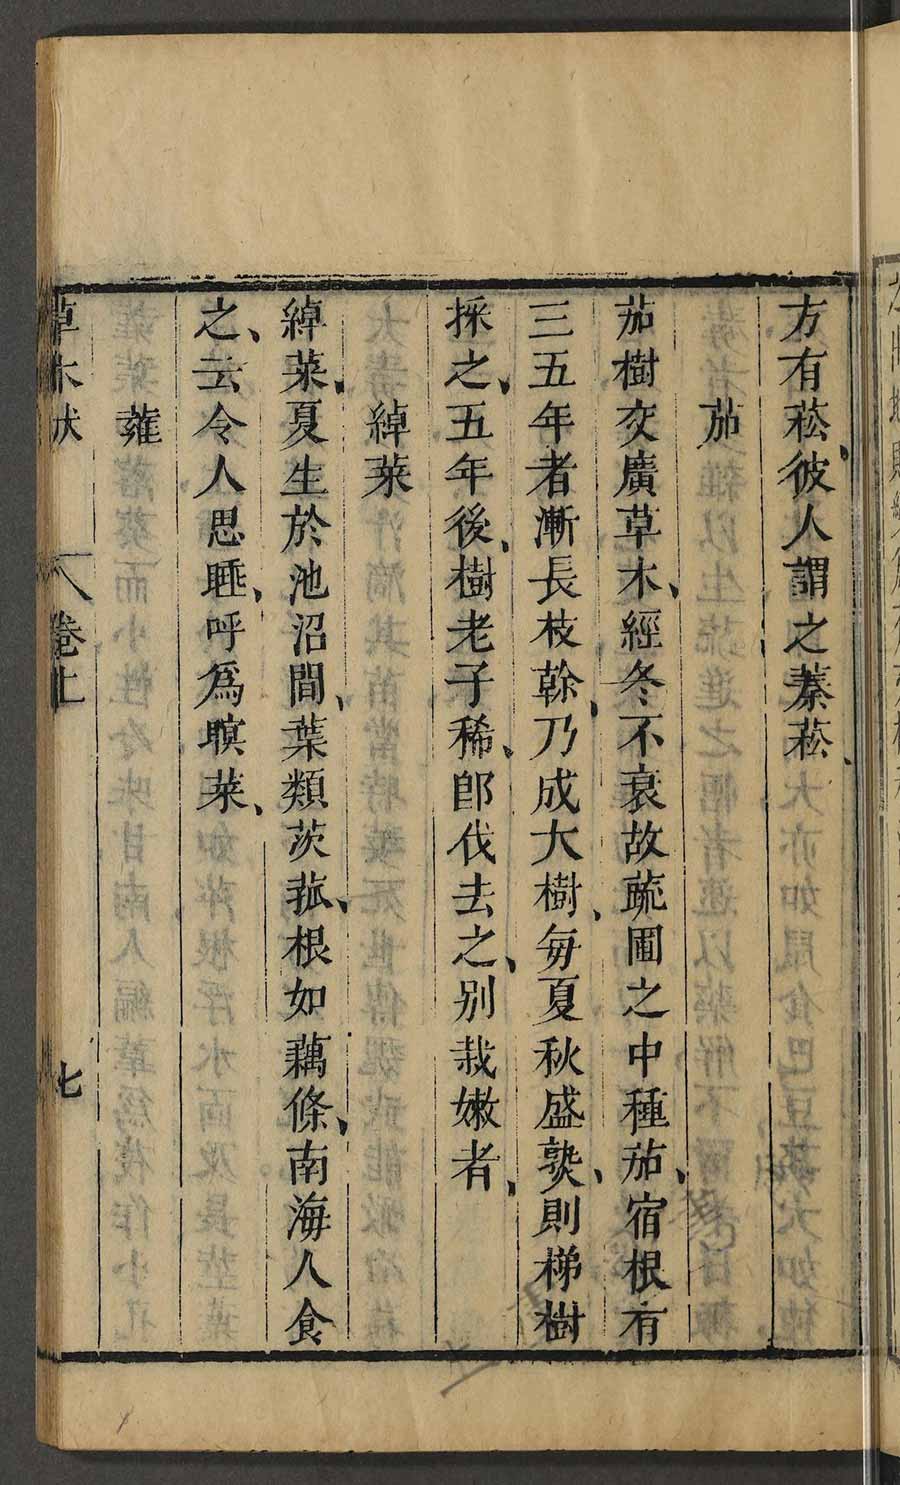 方有菘、彼人謂之蓁菘、
茄
茄樹交廣草木、經冬不衰故蔬圃之中種茄、宿根有
三五年者漸長枝幹、乃成大樹、每夏秋盛熟、則梯樹
採之、五年後、樹老子稀、卽伐去之、別栽嫩者、
綽菜
綽菜、夏生於池沼間、葉類茨菰、根如藕條、南海人食
之、云令人思睡、呼爲瞑菜、
蕹
草木狀 卷上 七